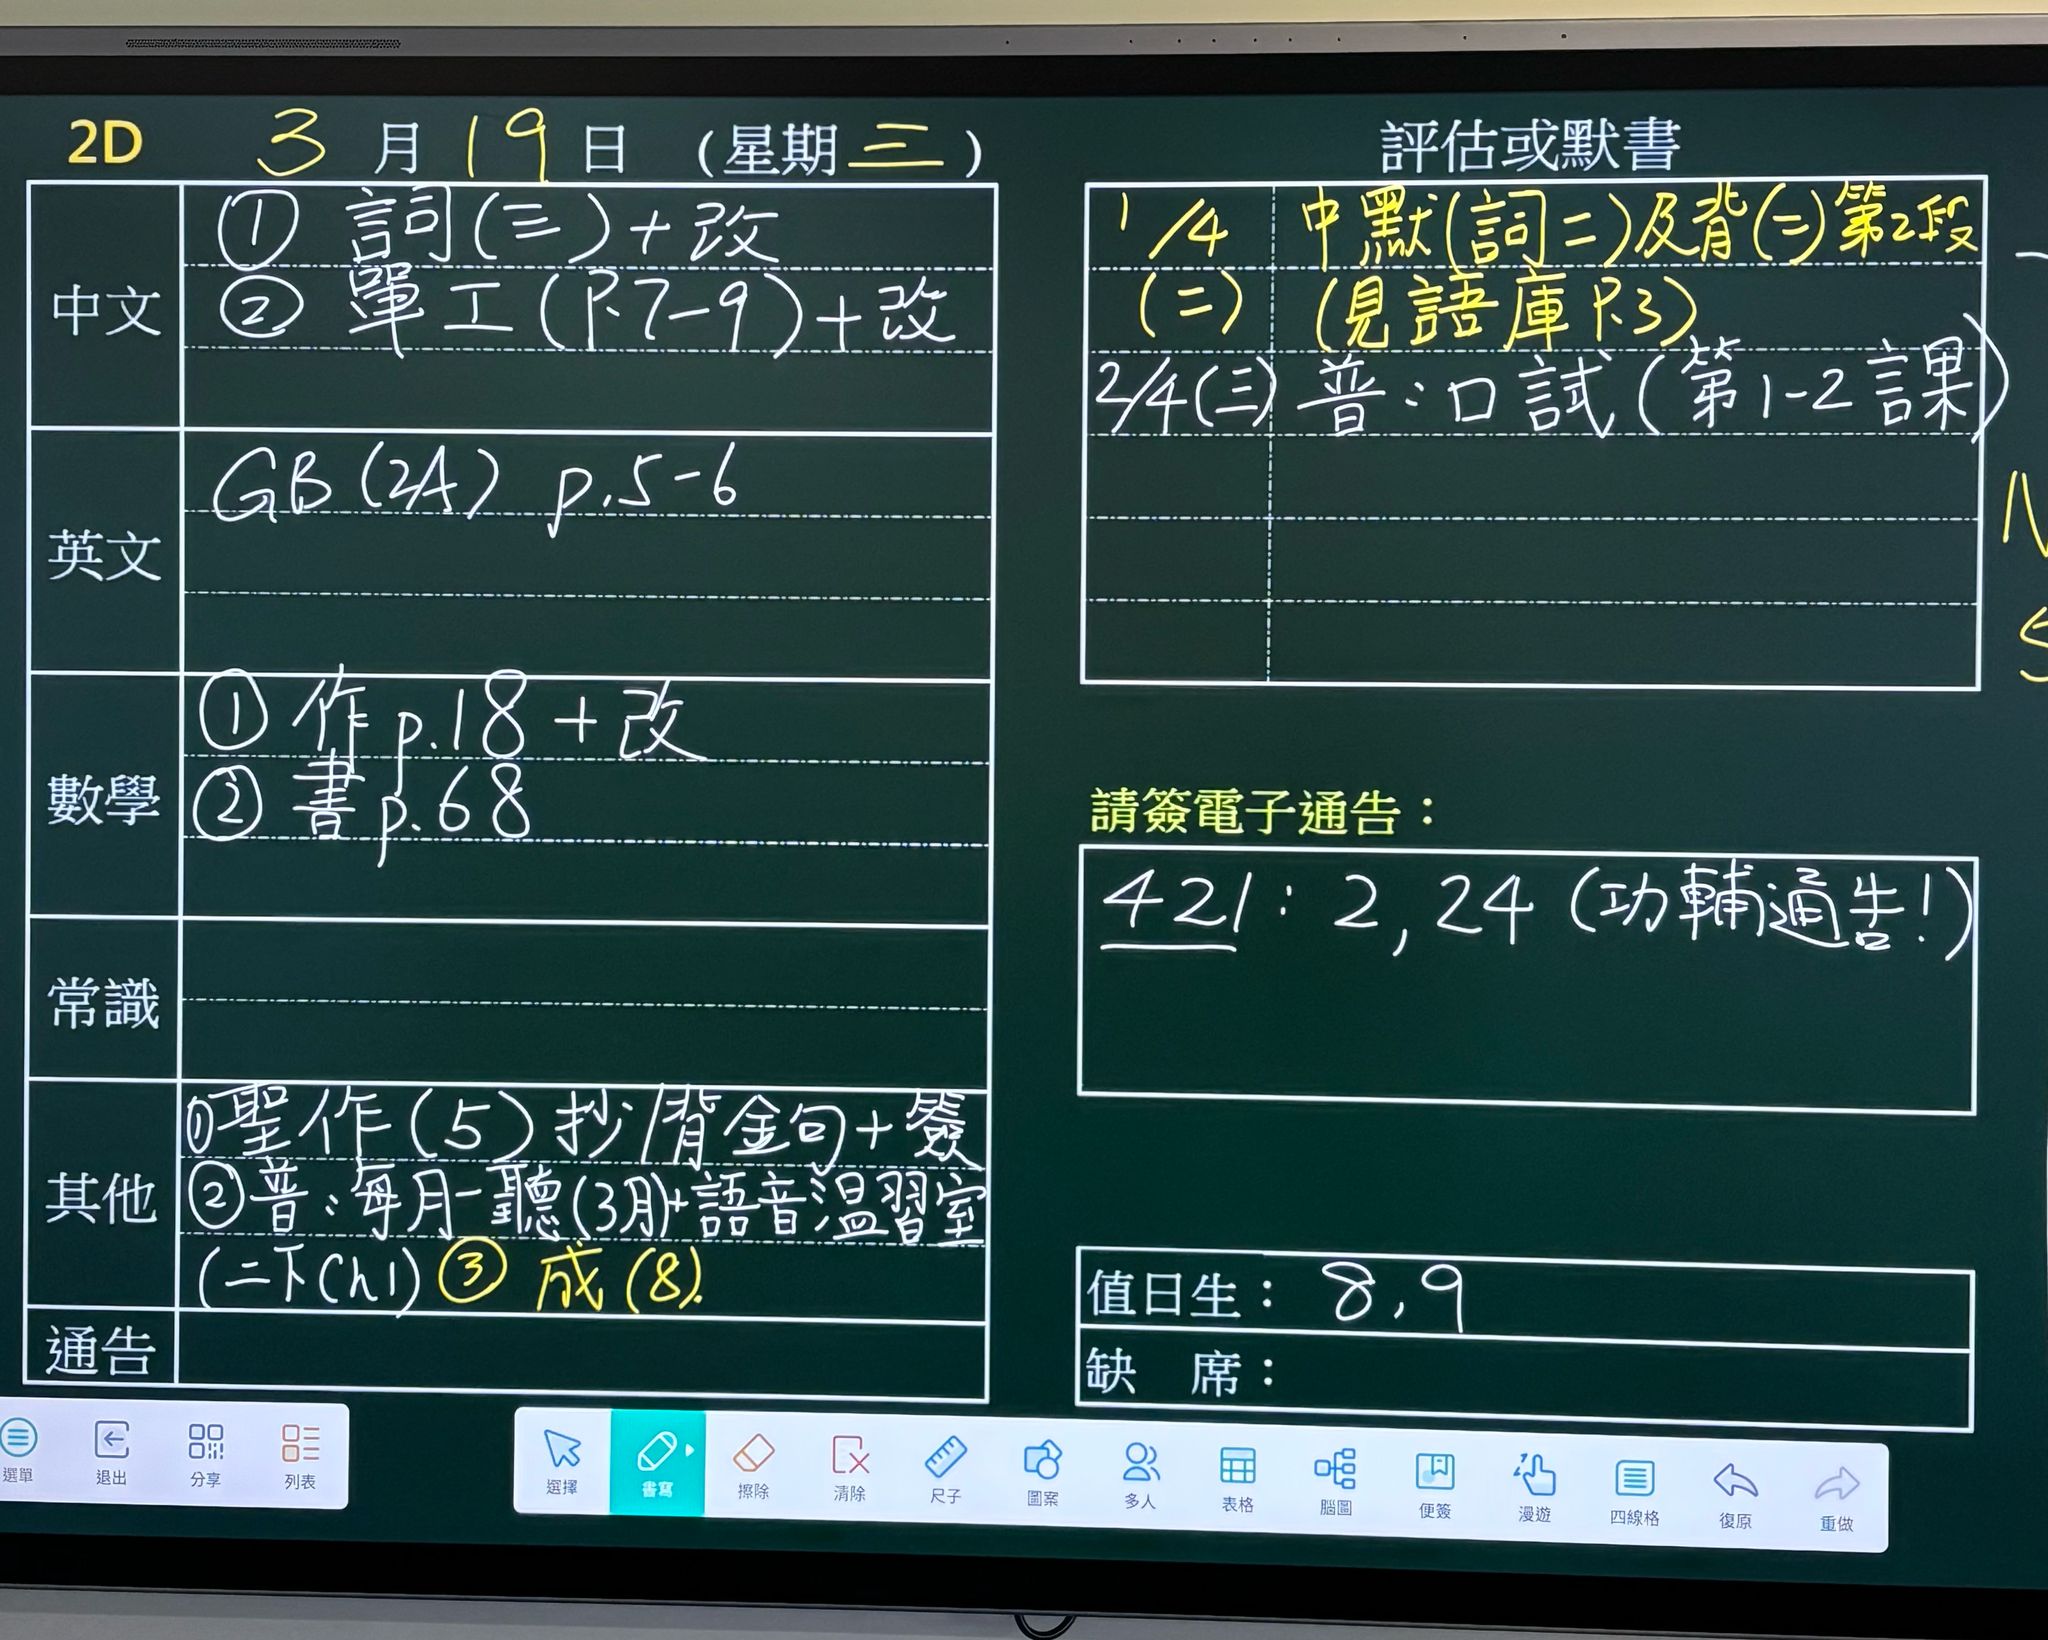 2D 3月19日 (星期三)
中文
① 詞(三)+改
② 單工(P.7-9)+改
英文
GB (2A) p.5-6
數學
① 作p.18+改
② 書p.68
常識
其他
①聖作(5)抄/背金句+簽
②普:每月一聽(3月)+語音溫習室
(二下Ch1) ③ 成(8).
通告
評估或默書
1/4 中默(詞二)及背(二)第2段
(二) (見語庫P.3)
2/4(三) 普:口試(第1-2課)
請簽電子通告:
421: 2, 24 (功輔通告!)
值日生: 8, 9
缺 席:
選單
退出
分享
列表
選擇
書寫
擦除
清除
尺子
圖案
多人
表格
腦圖
便簽
漫遊
四線格
復原
重做